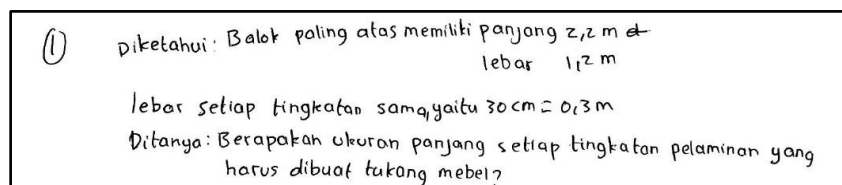 ① Diketahui: Balok paling atas memiliki panjang 2,2 m
lebar 1,2 m
lebar setiap tingkatan sama, yaitu 30 cm = 0,3 m
Ditanya: Berapakah ukuran panjang setiap tingkatan pelaminan yang
harus dibuat tukang mebel?